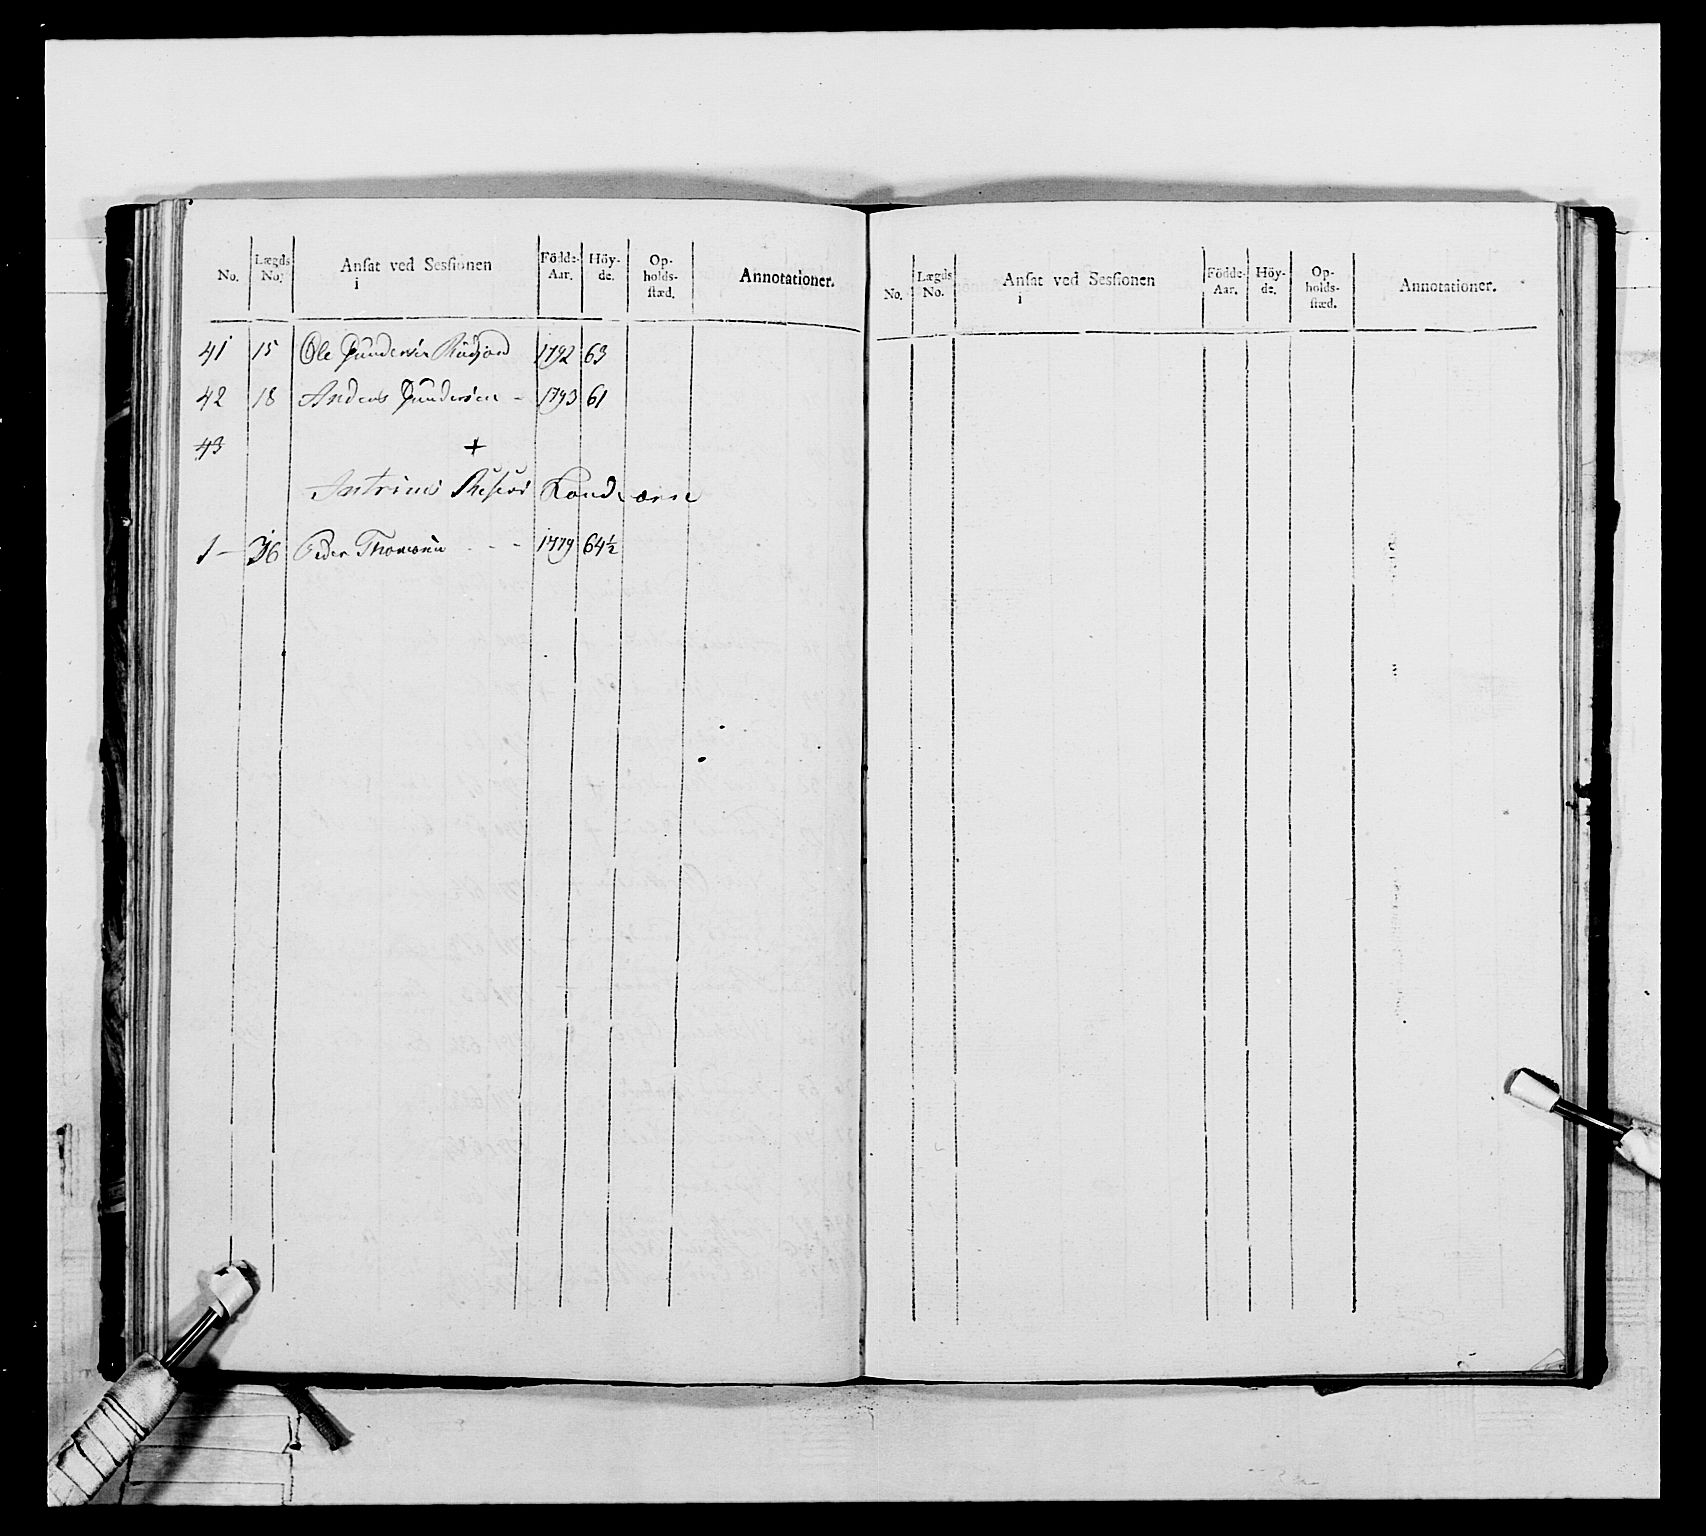 No. Lægds No. Ansat ved Sessionen i Födde-Aar. Höy-de. Op-holds-stæd. Annotationer.
41 15 Ole Gundersen 1792 63
42 18 Anders Gundersen - 1793 61
43 +
Landværne
1 - 36 Peder Thomesen - - - 1779 64½
No. Lægds No. Ansat ved Sessionen i Födde-Aar. Höy-de. Op-holds-stæd. Annotationer.